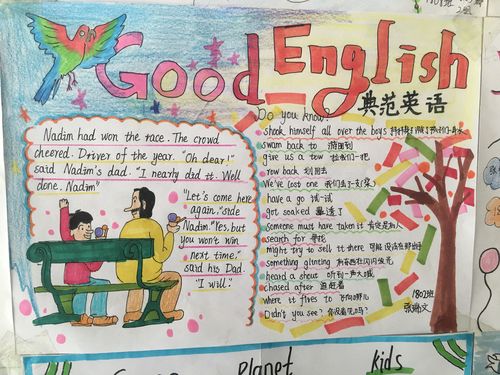 Good English
典范英语
Nadim had won the race. The crowd
cheered. Driver of the year. "Oh dear!"
said Nadim's dad. "I nearly did it. Well
done, Nadim"
"Let's come here
again," side
Nadim. "Yes, but
you won't win
next time,"
said his Dad.
"I will."
Do you know:
shook himself all over the boys
swam back to 游回到
give us a tow 拉我们一把
row back 划回去
We've lost one
have a go 试一试
got soaked 湿透了
someone must have taken it
search for 寻找
might try to sell it there
something glinting
heard a shout 听到一声大喊
chased after 追赶着
where it flies to
Didn't you see? 你没看见吗?
1802班
Planet
kids